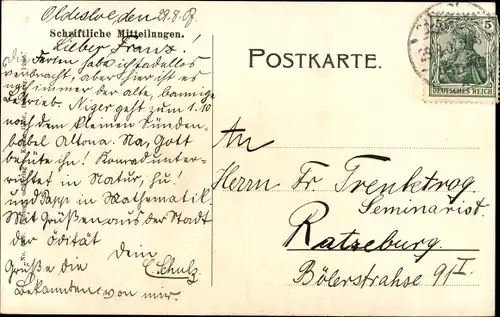 Oldesloe, den 29.8.07.
Schriftliche Mitteilungen.
Lieber Franz!
Die Ferien habe ich tadellos
verbracht, aber hier ist es
noch immer der alte,
Betrieb. Niger geht zum 1.10
nach dem kleinen Sünden-
babel Altona. Na, Gott
behüte ihn! Konrad unter-
richtet in Natur, hu!
und Papp in Mathematik.
Mit Grüßen aus der Stadt
der Ödität
dein
C. Schulz.
Grüße die
Bekannten von mir.
POSTKARTE.
5 5
DEUTSCHES REICH
An
Herrn Fr. Trenktrog
Seminarist.
Ratzeburg.
Bölerstrahse 91 I.